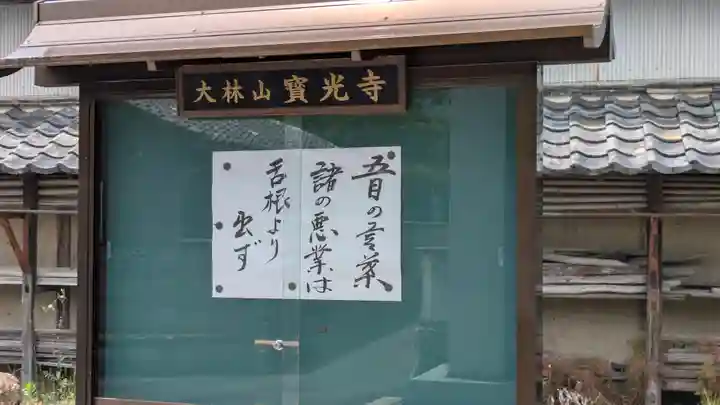 大林山 寶光寺
五月の言葉
諸の悪業は
舌根より
出ず